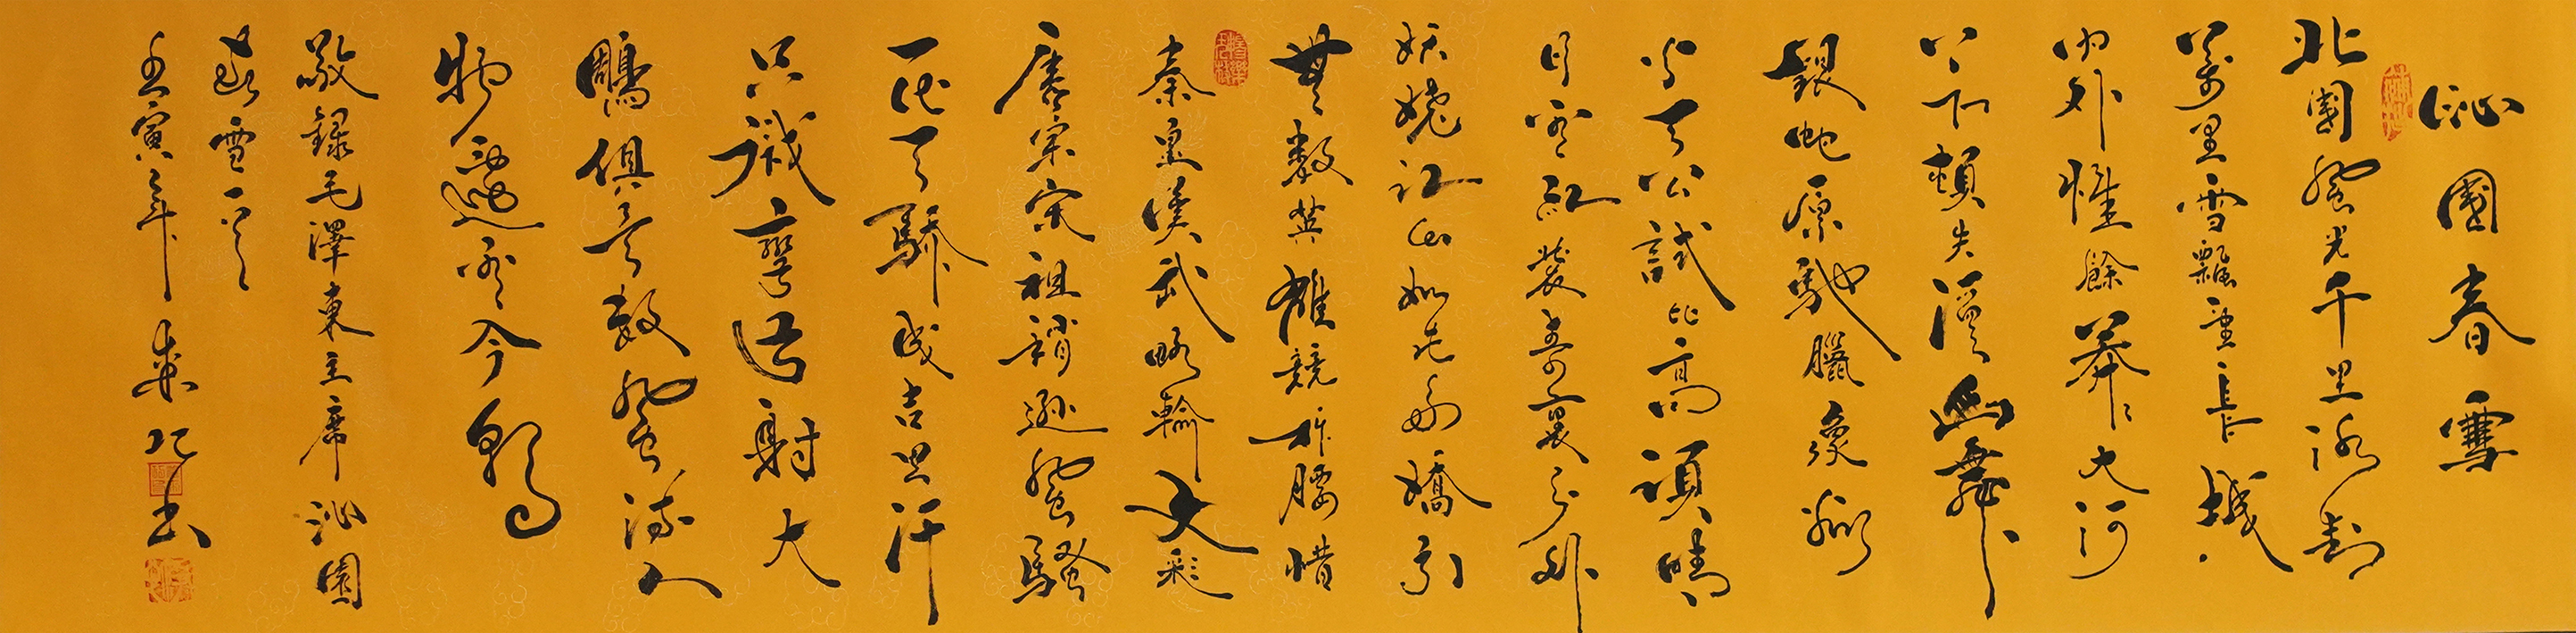 沁園春雪
北國風光千里冰封
萬里雪飄望長城
內外惟餘莽莽大河
上下頓失滔滔山舞
銀蛇原馳臘象欲
與天公試比高須晴
日看紅裝素裹分外
妖嬈江山如此多嬌引
無數英雄競折腰惜
秦皇漢武略輸文彩
唐宗宋祖稍遜風騷
一代天驕成吉思汗
只識彎弓射大
鵰俱往矣數風流人
物還看今朝
敬錄毛澤東主席沁園
春雪一首
壬寅年 書